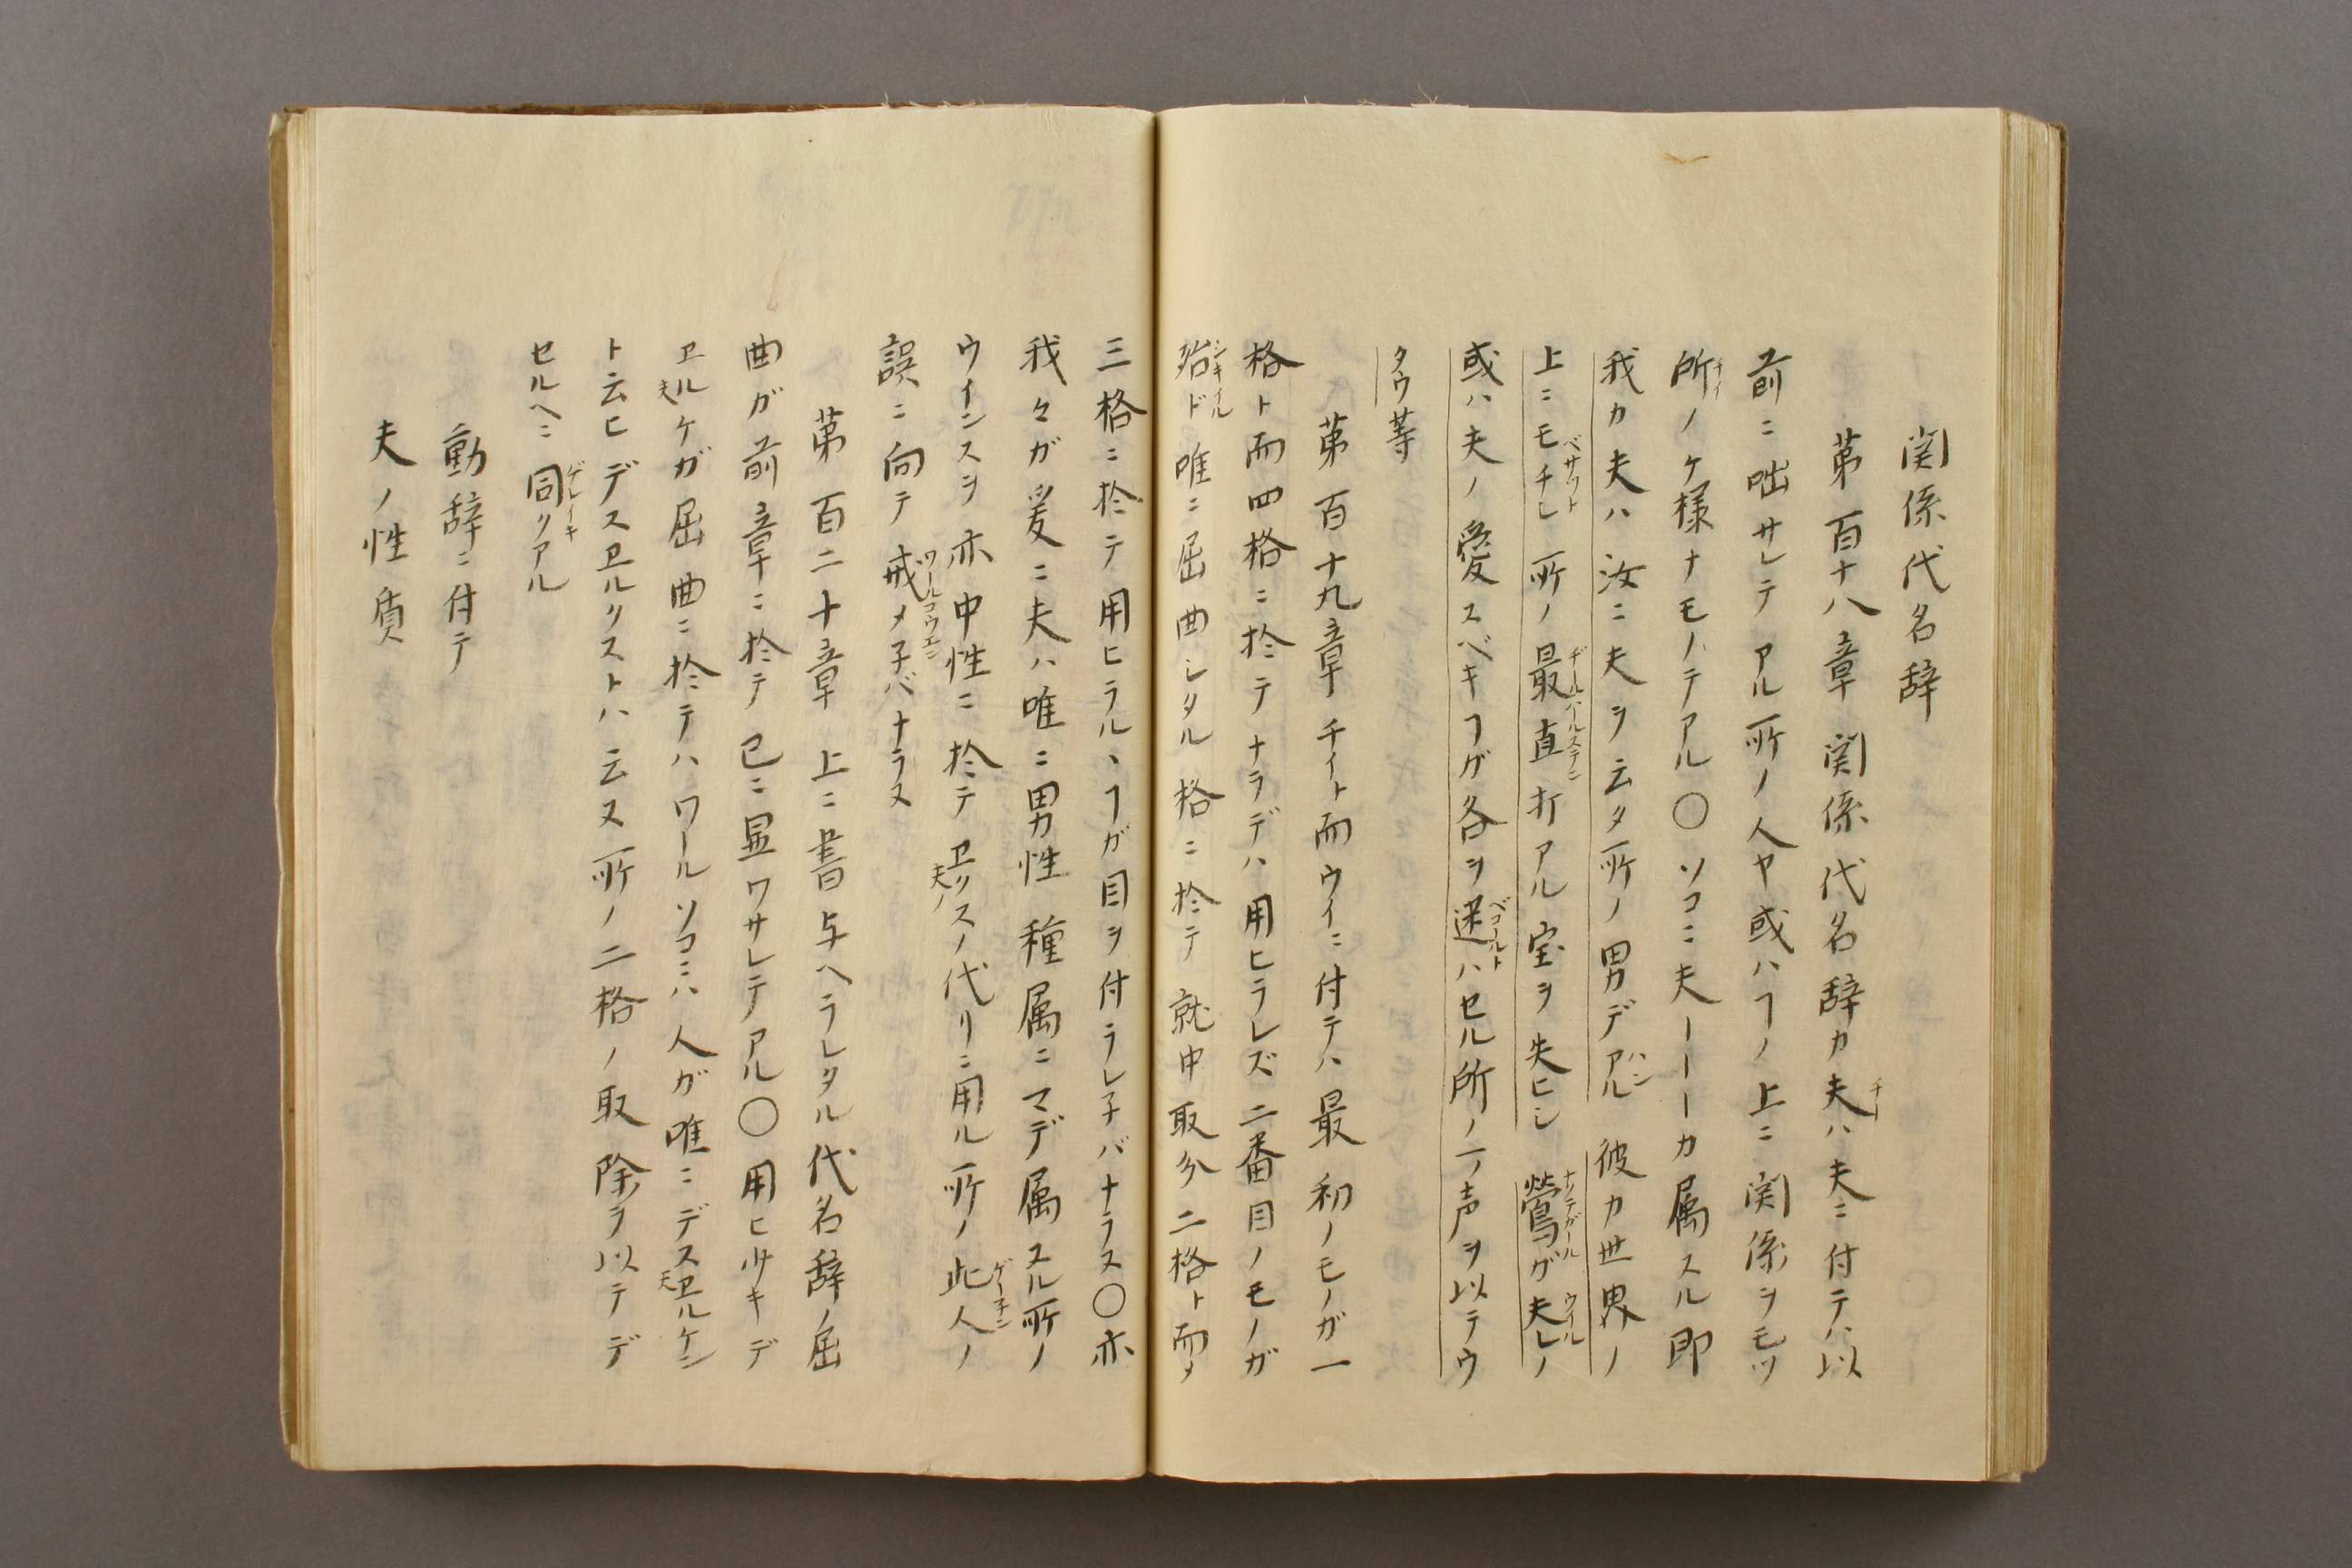 関係代名辞
第百十八章 関係代名辞カ夫ハ夫ニ付テハ以
前ニ咄サレテアル所ノ人ヤ或ハヿノ上ニ関係ヲモツ
所ノケ様ナモノテアル〇ソコニ夫ーーーカ属スル即
我カ夫ハ汝ニ夫ヲ云タ所ノ男デアル 彼カ世界ノ
上ニモチシ所ノ最直打アル宝ヲ失ヒシ 鶯ガ夫レノ
或ハ夫ノ愛スベキヿガ各ヲ迷ハセル所ノ声ヲ以テウ
タウ等
第百十九章 チイト而ウイニ付テハ最初ノモノガ一
格ト而四格ニ於テナラデハ用ヒラレズ二番目ノモノガ
殆ド唯ニ屈曲シタル格ニ於テ就中取分二格ト而メ
三格ニ於テ用ヒラルヽヿガ目ヲ付ラレ子バナラス〇亦
我々ガ爰ニ夫ハ唯ニ男性種属ニマデ属スル所ノ
ウインスヲ亦中性ニ於テヱリスノ代リニ用ル所ノ此人ノ
誤ニ向テ戒メ子バナラヌ
第百二十章 上ニ書与ヘラレタル代名辞ノ屈
曲ガ前章ニ於テ已ニ显ワサレテアル〇用ヒ少キデ
ヱルケガ屈曲ニ於テハワールソコニハ人ガ唯ニデスヱルケン
ト云ヒデスヱルリストハ云ヌ所ノ二格ノ取除ヲ以テデ
セルヘニ同クアル
動辞ニ付テ
夫ノ性質